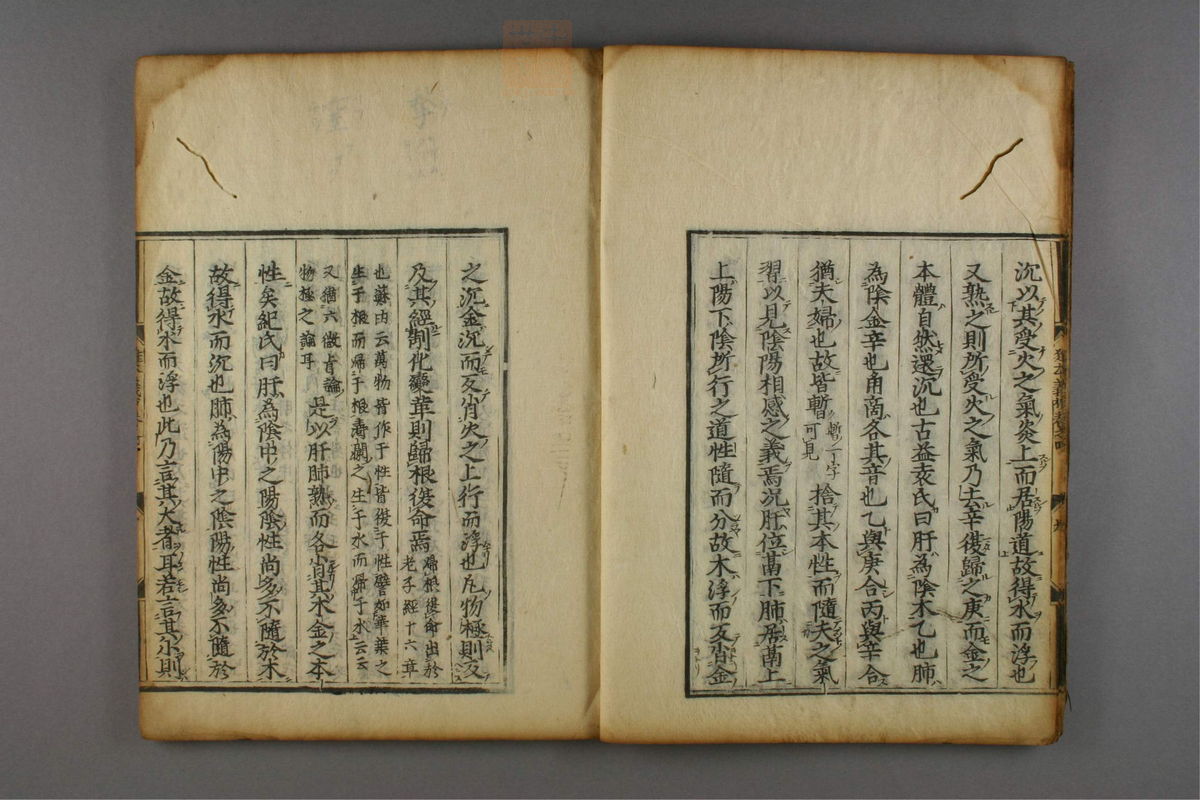 沉以其受火之氣炎上而居陽道故得水而浮也
又熟之則所受火之氣乃去辛復歸之庚而金之
本體自然還沉也古益袁氏曰肝為陰木乙也肺
為陰金辛也甬商各其音也乙與庚合丙與辛合
猶夫婦也故皆暫暫ノ一字可見捨其本性而隨夫之氣
習以見陰陽相感之義焉况肝位鬲下肺居鬲上
上陽下陰所行之道性隨而分故木浮而反肖金
之沉金沉而反肖火之上行而浮也凡物極則反
及其經制化變革則歸根復命焉歸根復命出於老子經十六章
也蘇由云萬物皆作于性皆復于性譬如華葉之
生于根而歸于根濤瀾之生于水而歸于水云云
又猶六微旨論
物極之論耳是以肝肺熟而各肖其木金之本
性矣紀氏曰肝為陰中之陽陰性尚多不隨於木
故得水而沉也肺為陽中之陰陽性尚多不隨於
金故得水而浮也此乃言其大者耳若言其小則